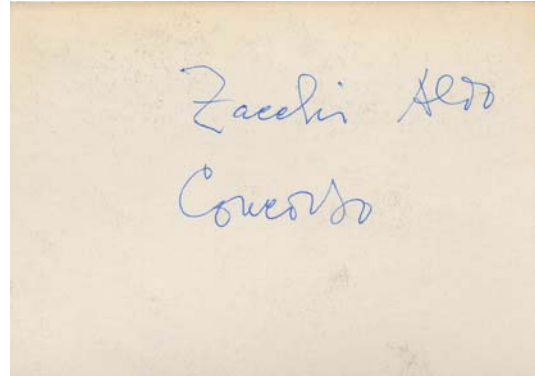 Zacchi Aldo
Concorso